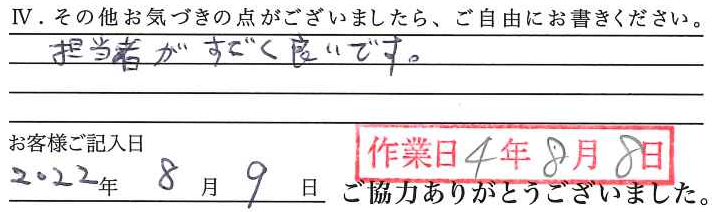 Ⅳ．その他お気づきの点がございましたら、ご自由にお書きください。
担当者がすごく良いです。
お客様ご記入日
作業日4年8月8日
2022年 8月 9日
ご協力ありがとうございました。